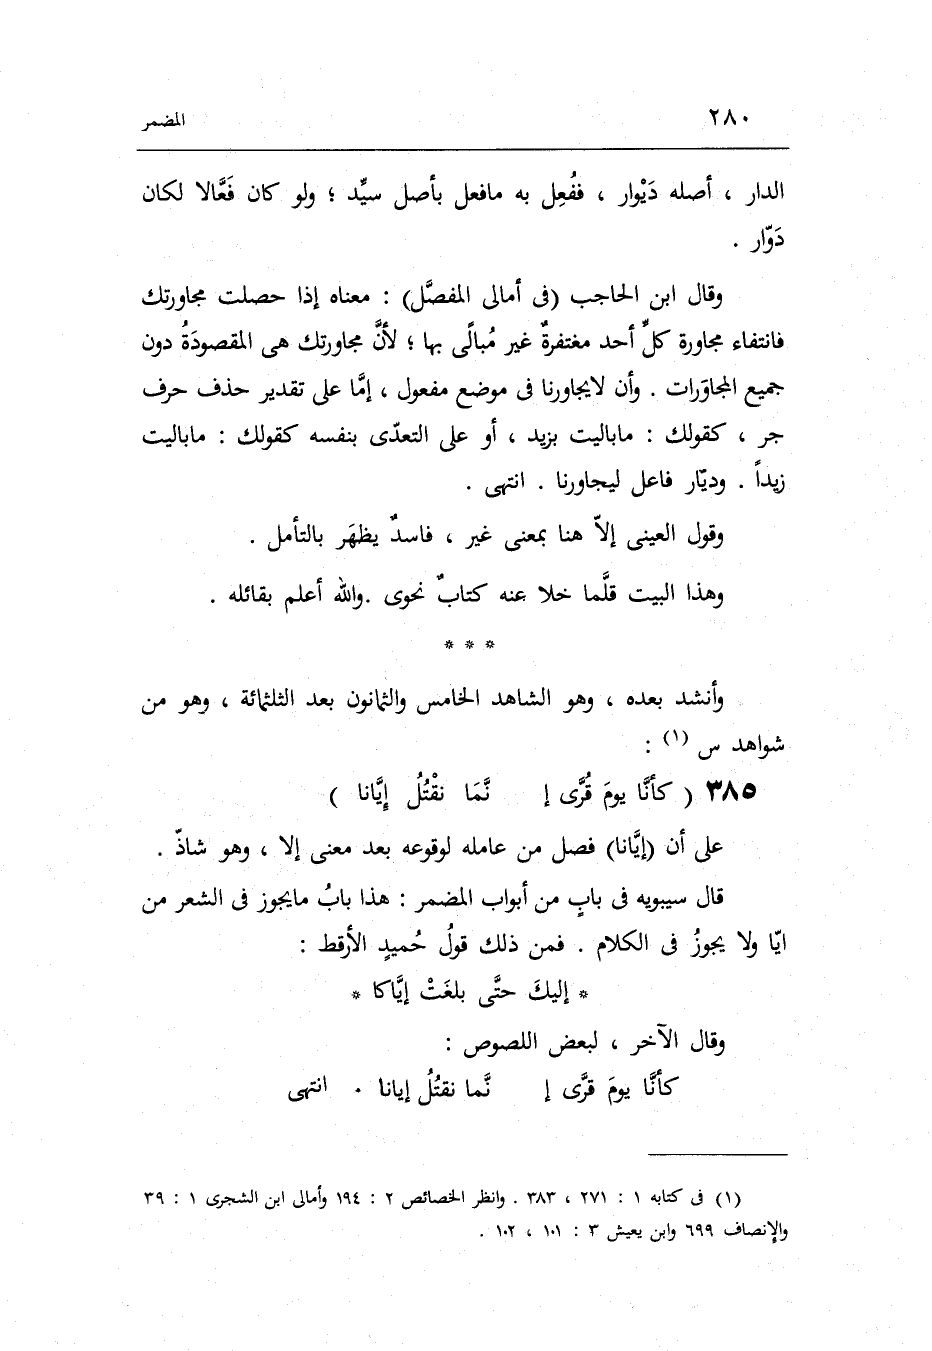 ٢٨٠
المضمر
الدار ، أصله دَيْوار ، ففُعِل به مافعل بأصل سيِّد ؛ ولو كان فَعَّالا لكان
دَوّار .
وقال ابن الحاجب (فى أمالى المفصَّل) : معناه إذا حصلت مجاورتك
فانتفاء مجاورة كلِّ أحد مغتفرةٌ غير مُبالًى بها ؛ لأنَّ مجاورتك هى المقصودَةُ دون
جميع المجاوَرات . وأن لايجاورنا فى موضع مفعول ، إمَّا على تقدير حذف حرف
جر ، كقولك : ماباليت بزيد ، أو على التعدّى بنفسه كقولك : ماباليت
زيداً . وديّار فاعل ليجاورنا . انتهى .
وقول العينى إلاّ هنا بمعنى غير ، فاسدٌ يظهَر بالتأمل .
وهذا البيت قلَّما خلا عنه كتابٌ نحوى .والله أعلم بقائله .
* * *
وأنشد بعده ، وهو الشاهد الخامس والثمانون بعد الثلثمائة ، وهو من
شواهد س (١) :
٣٨٥ ( كأنَّا يومَ قُرَّى إ نَّمَا نقْتُلُ إيَّانا )
على أن (إيَّانا) فصل من عامله لوقوعه بعد معنى إلا ، وهو شاذّ .
قال سيبويه فى بابٍ من أبواب المضمر : هذا بابُ مايجوز فى الشعر من
ايّا ولا يجوزُ فى الكلام . فمن ذلك قولُ حُميدٍ الأرقط :
* إليكَ حتَّى بلغَتْ إيَّاكا *
وقال الآخر ، لبعض اللصوص :
كأنَّا يومَ قرَّى إ نَّما نقتُلُ إيانا . انتهى
(١) فى كتابه ١ : ٢٧١ ، ٣٨٣ . وانظر الخصائص ٢ : ١٩٤ وأمالى ابن الشجرى ١ : ٣٩
والإنصاف ٦٩٩ وابن يعيش ٣ : ١٠١ ، ١٠٢ .